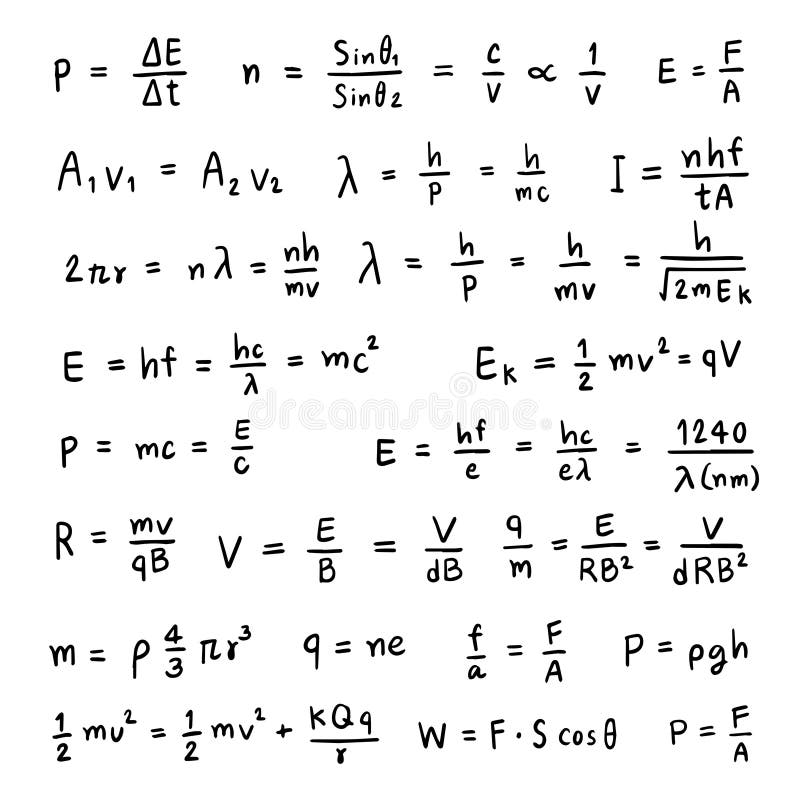 P = ΔE/Δt    n = Sinθ₁/Sinθ₂ = c/v ∝ 1/v    E = F/A
A₁v₁ = A₂v₂    λ = h/P = h/mc    I = nhf/tA
2πr = nλ = nh/mv    λ = h/P = h/mv = h/√2mEₖ
E = hf = hc/λ = mc²    Eₖ = 1/2 mv² = qV
dreamstime
P = mc = E/c    E = hf/e = hc/eλ = 1240/λ(nm)
R = mv/qB    V = E/B = V/dB    q/m = E/RB² = V/dRB²
m = ρ 4/3 πr³    q = ne    f/a = F/A    P = ρgh
1/2 mv² = 1/2 mv² + kQq/r    W = F·S cosθ    P = F/A